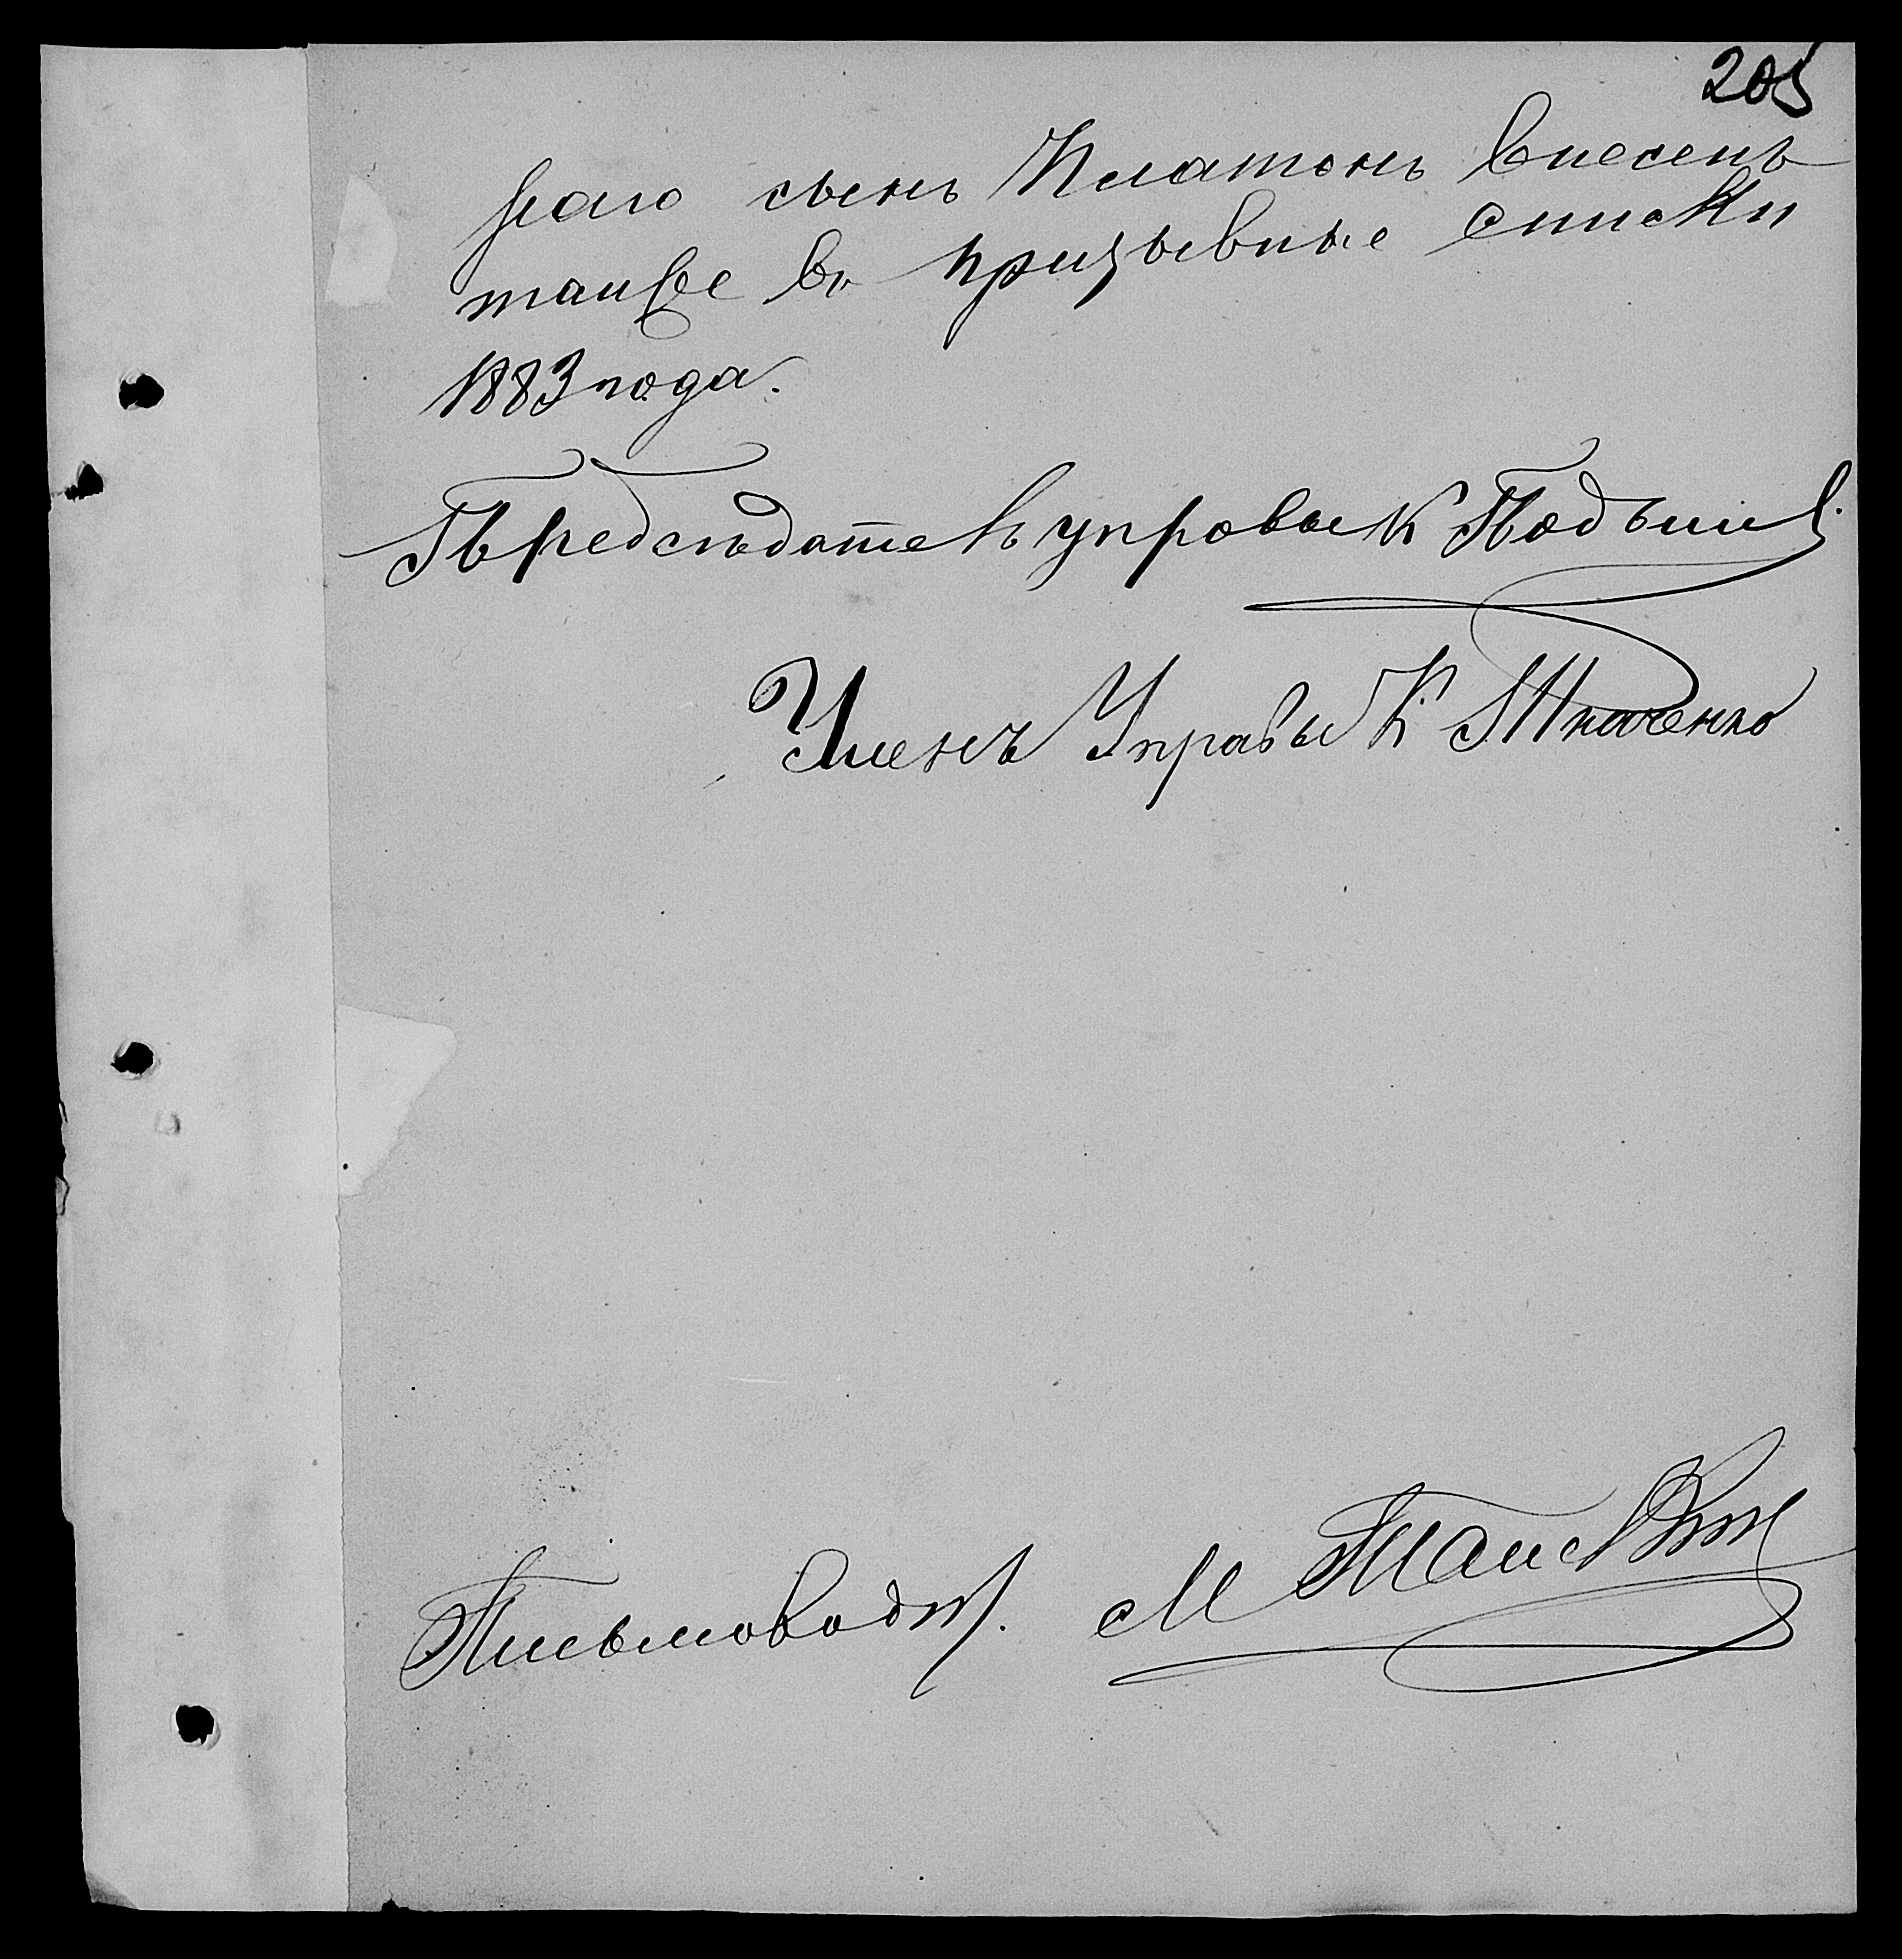 205
раго сынъ Платонъ внесенъ
также въ призывные списки
1883 года.
Предсѣдатель управы К
Членъ Управы К Ткаченко
Письмовод. М